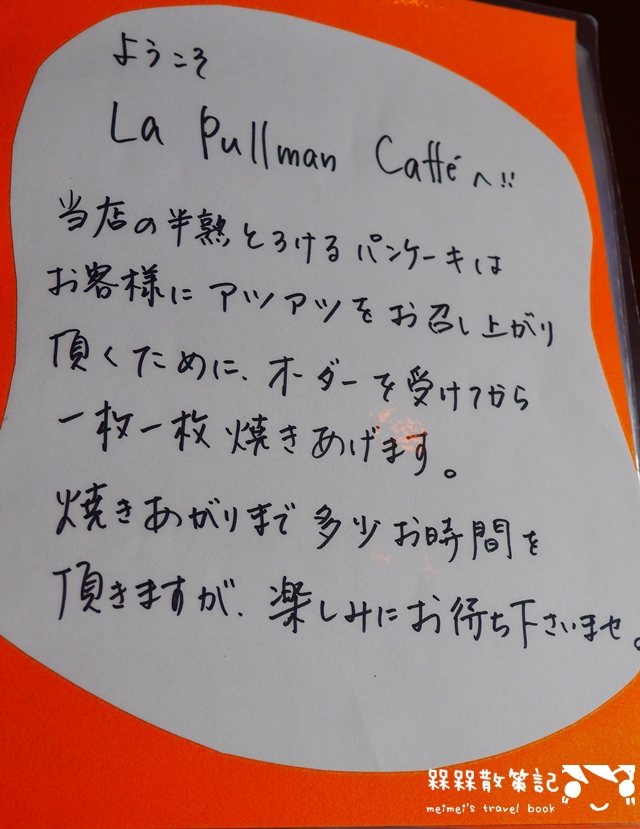 ようこそ
La Pullman Caffé へ!!
当店の半熟とろけるパンケーキは
お客様にアツアツをお召し上がり
頂くために、オーダーを受けてから
一枚一枚焼きあげます。
焼きあがりまで多少お時間を
頂きますが、楽しみにお待ち下さいませ。
槑槑散策記
meimei's travel book